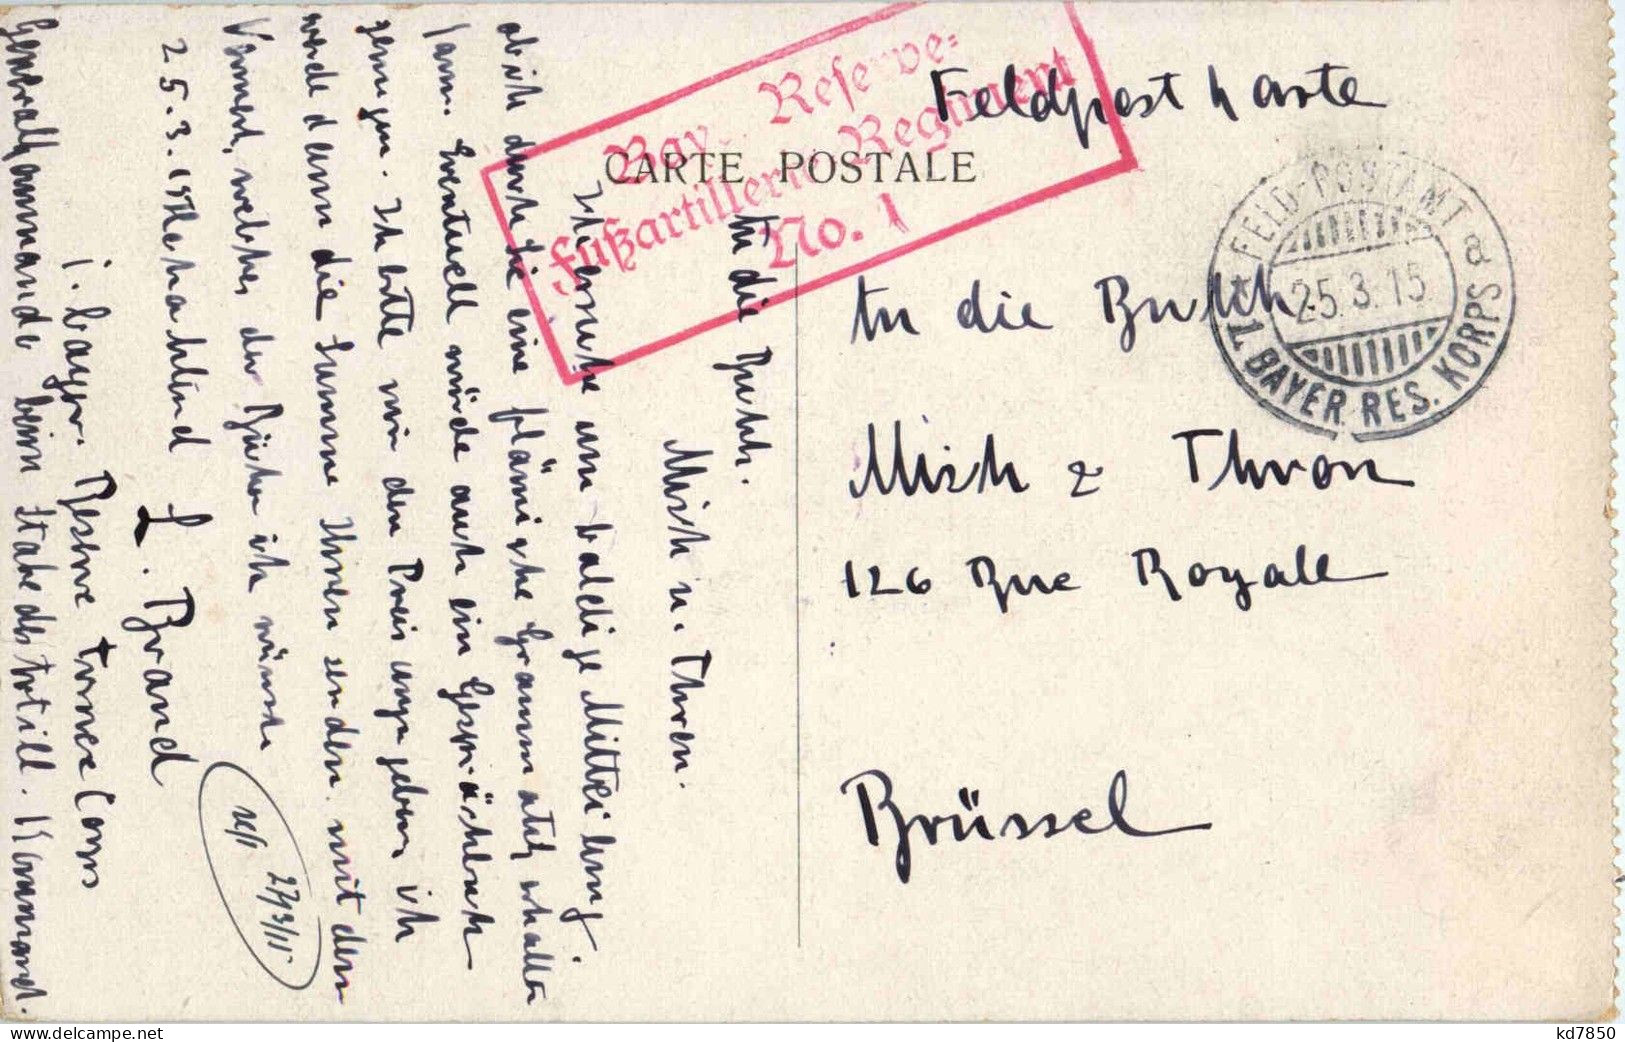 Feldpostkarte
CARTE POSTALE
Bay. Reserve-
Fußartillerie Regiment
No. 1
FELD-POSTAMT a
25.3.15
* 1. BAYER. RES. KORPS
An die Buchh.
Misch & Thron
126 Rue Royale
Brüssel
An die Buchh.
Misch u. Thron.
Ich ersuche um baldige Mitteilung,
ob ich durch Sie eine flämische Grammatik erhalten
kann. Eventuell würde auch ein Gesprächbuch
genügen. Ich bitte mir den Preis anzugeben, ich
werde dann die Summe Ihnen senden mit dem
Vermerk, welches der Bücher ich wünsche
25.3.15 Hochachtend
L. Brand
1. bayr. Reserve Corps
Generalkommando beim Stabe des Artill. Kommand.
27/3/15
www.delcampe.net
kd7850